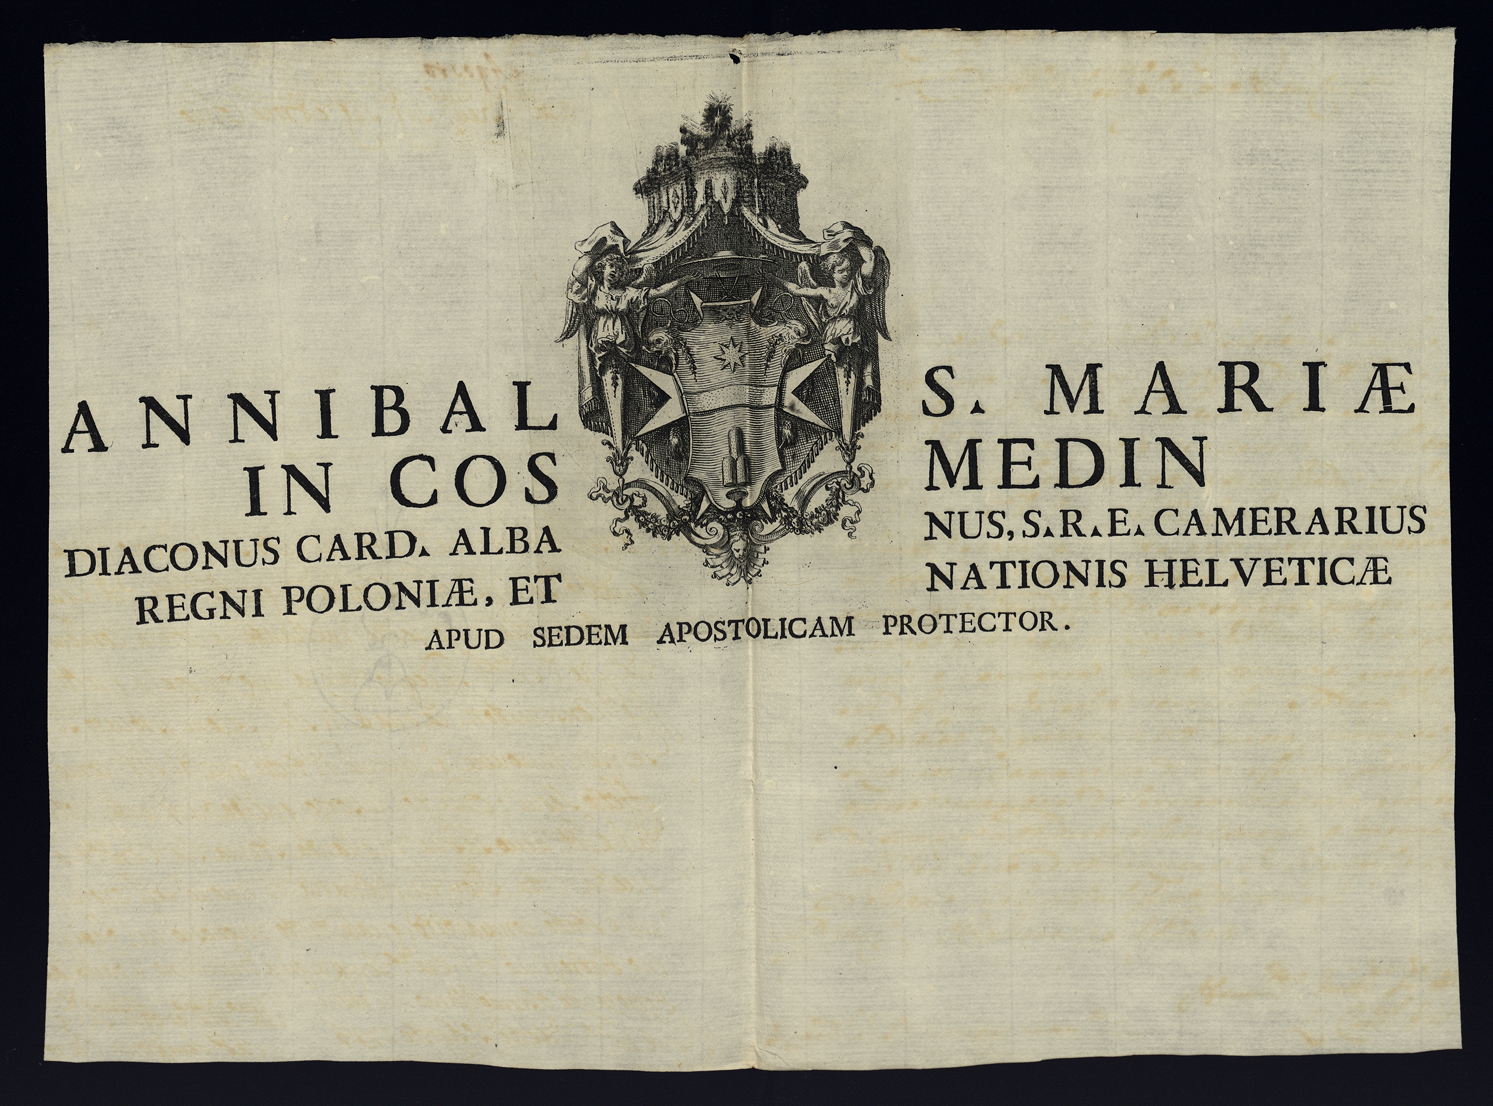 ANNIBAL S. MARIÆ
IN COS MEDIN
DIACONUS CARD. ALBA NUS, S.R.E. CAMERARIUS
REGNI POLONIÆ, ET NATIONIS HELVETICÆ
APUD SEDEM APOSTOLICAM PROTECTOR.